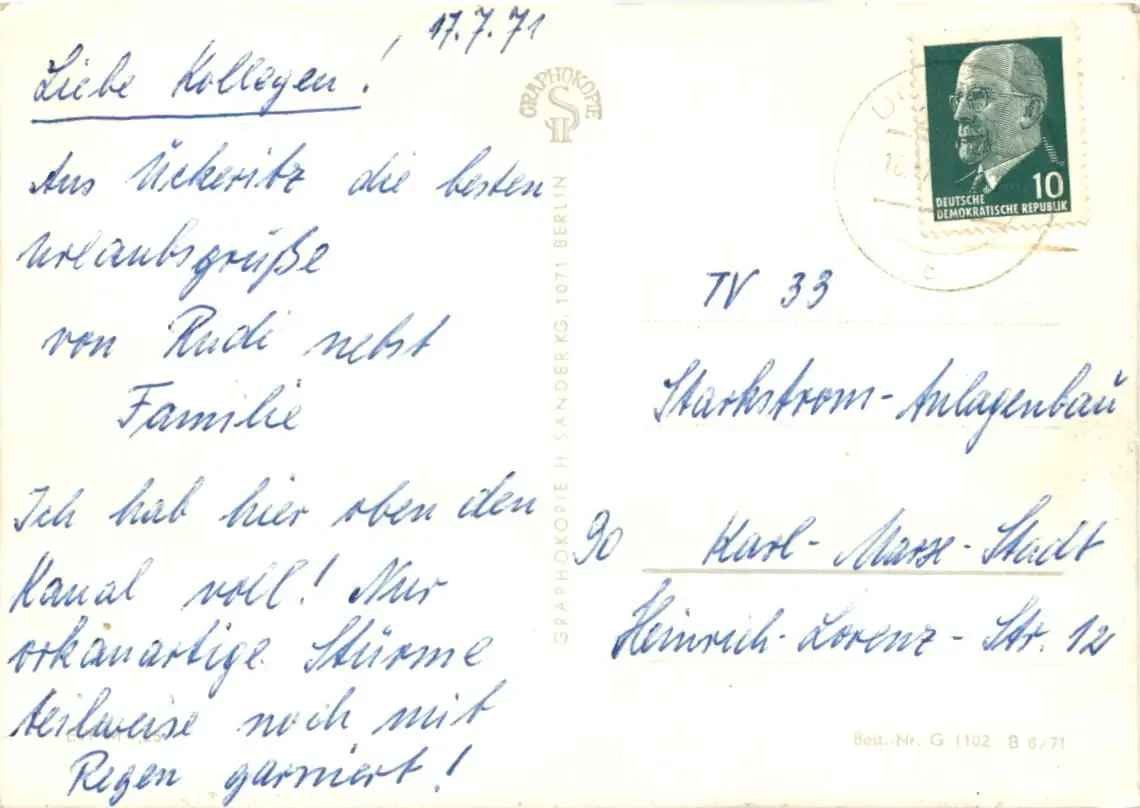 17.7.71
Liebe Kollegen!
Aus Ückeritz die besten
Urlaubsgrüße
von Rudi nebst
Familie
Ich hab hier oben den
Kanal voll! Nur
orkanartige Stürme
teilweise noch mit
Regen garniert!
GRAPHOKOPIE
H S
GRAPHOKOPIE H SANDER KG, 1071 BERLIN
10
DEUTSCHE
DEMOKRATISCHE REPUBLIK
c
TV 33
Starkstrom-Anlagenbau
90 Karl-Marx-Stadt
Heinrich-Lorenz-Str. 12
Best.-Nr. G 1102 B 8/71